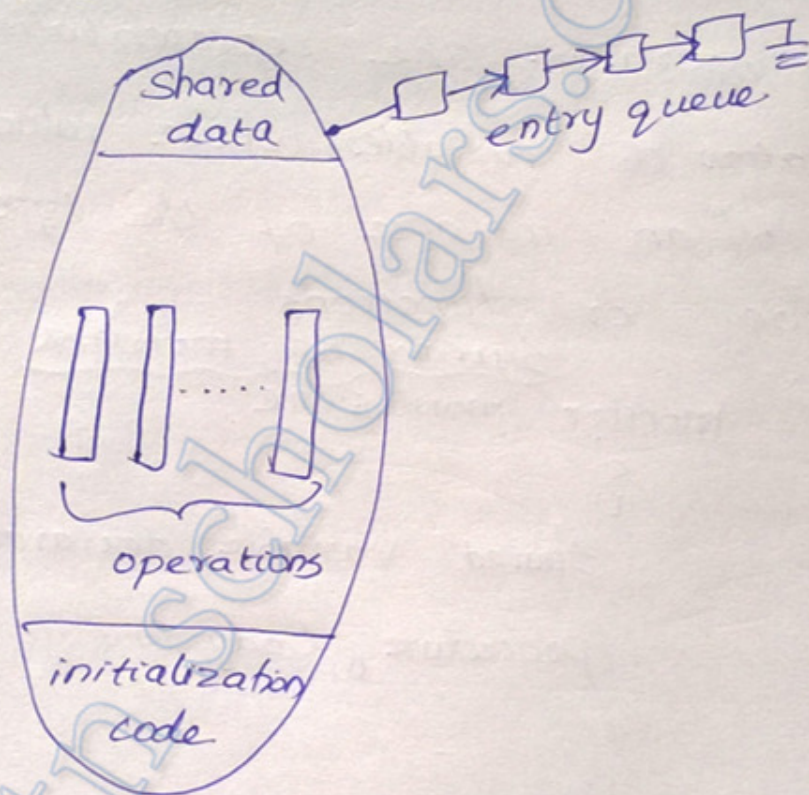 Shared
data
entry queue
operations
initialization
code
scholars.c